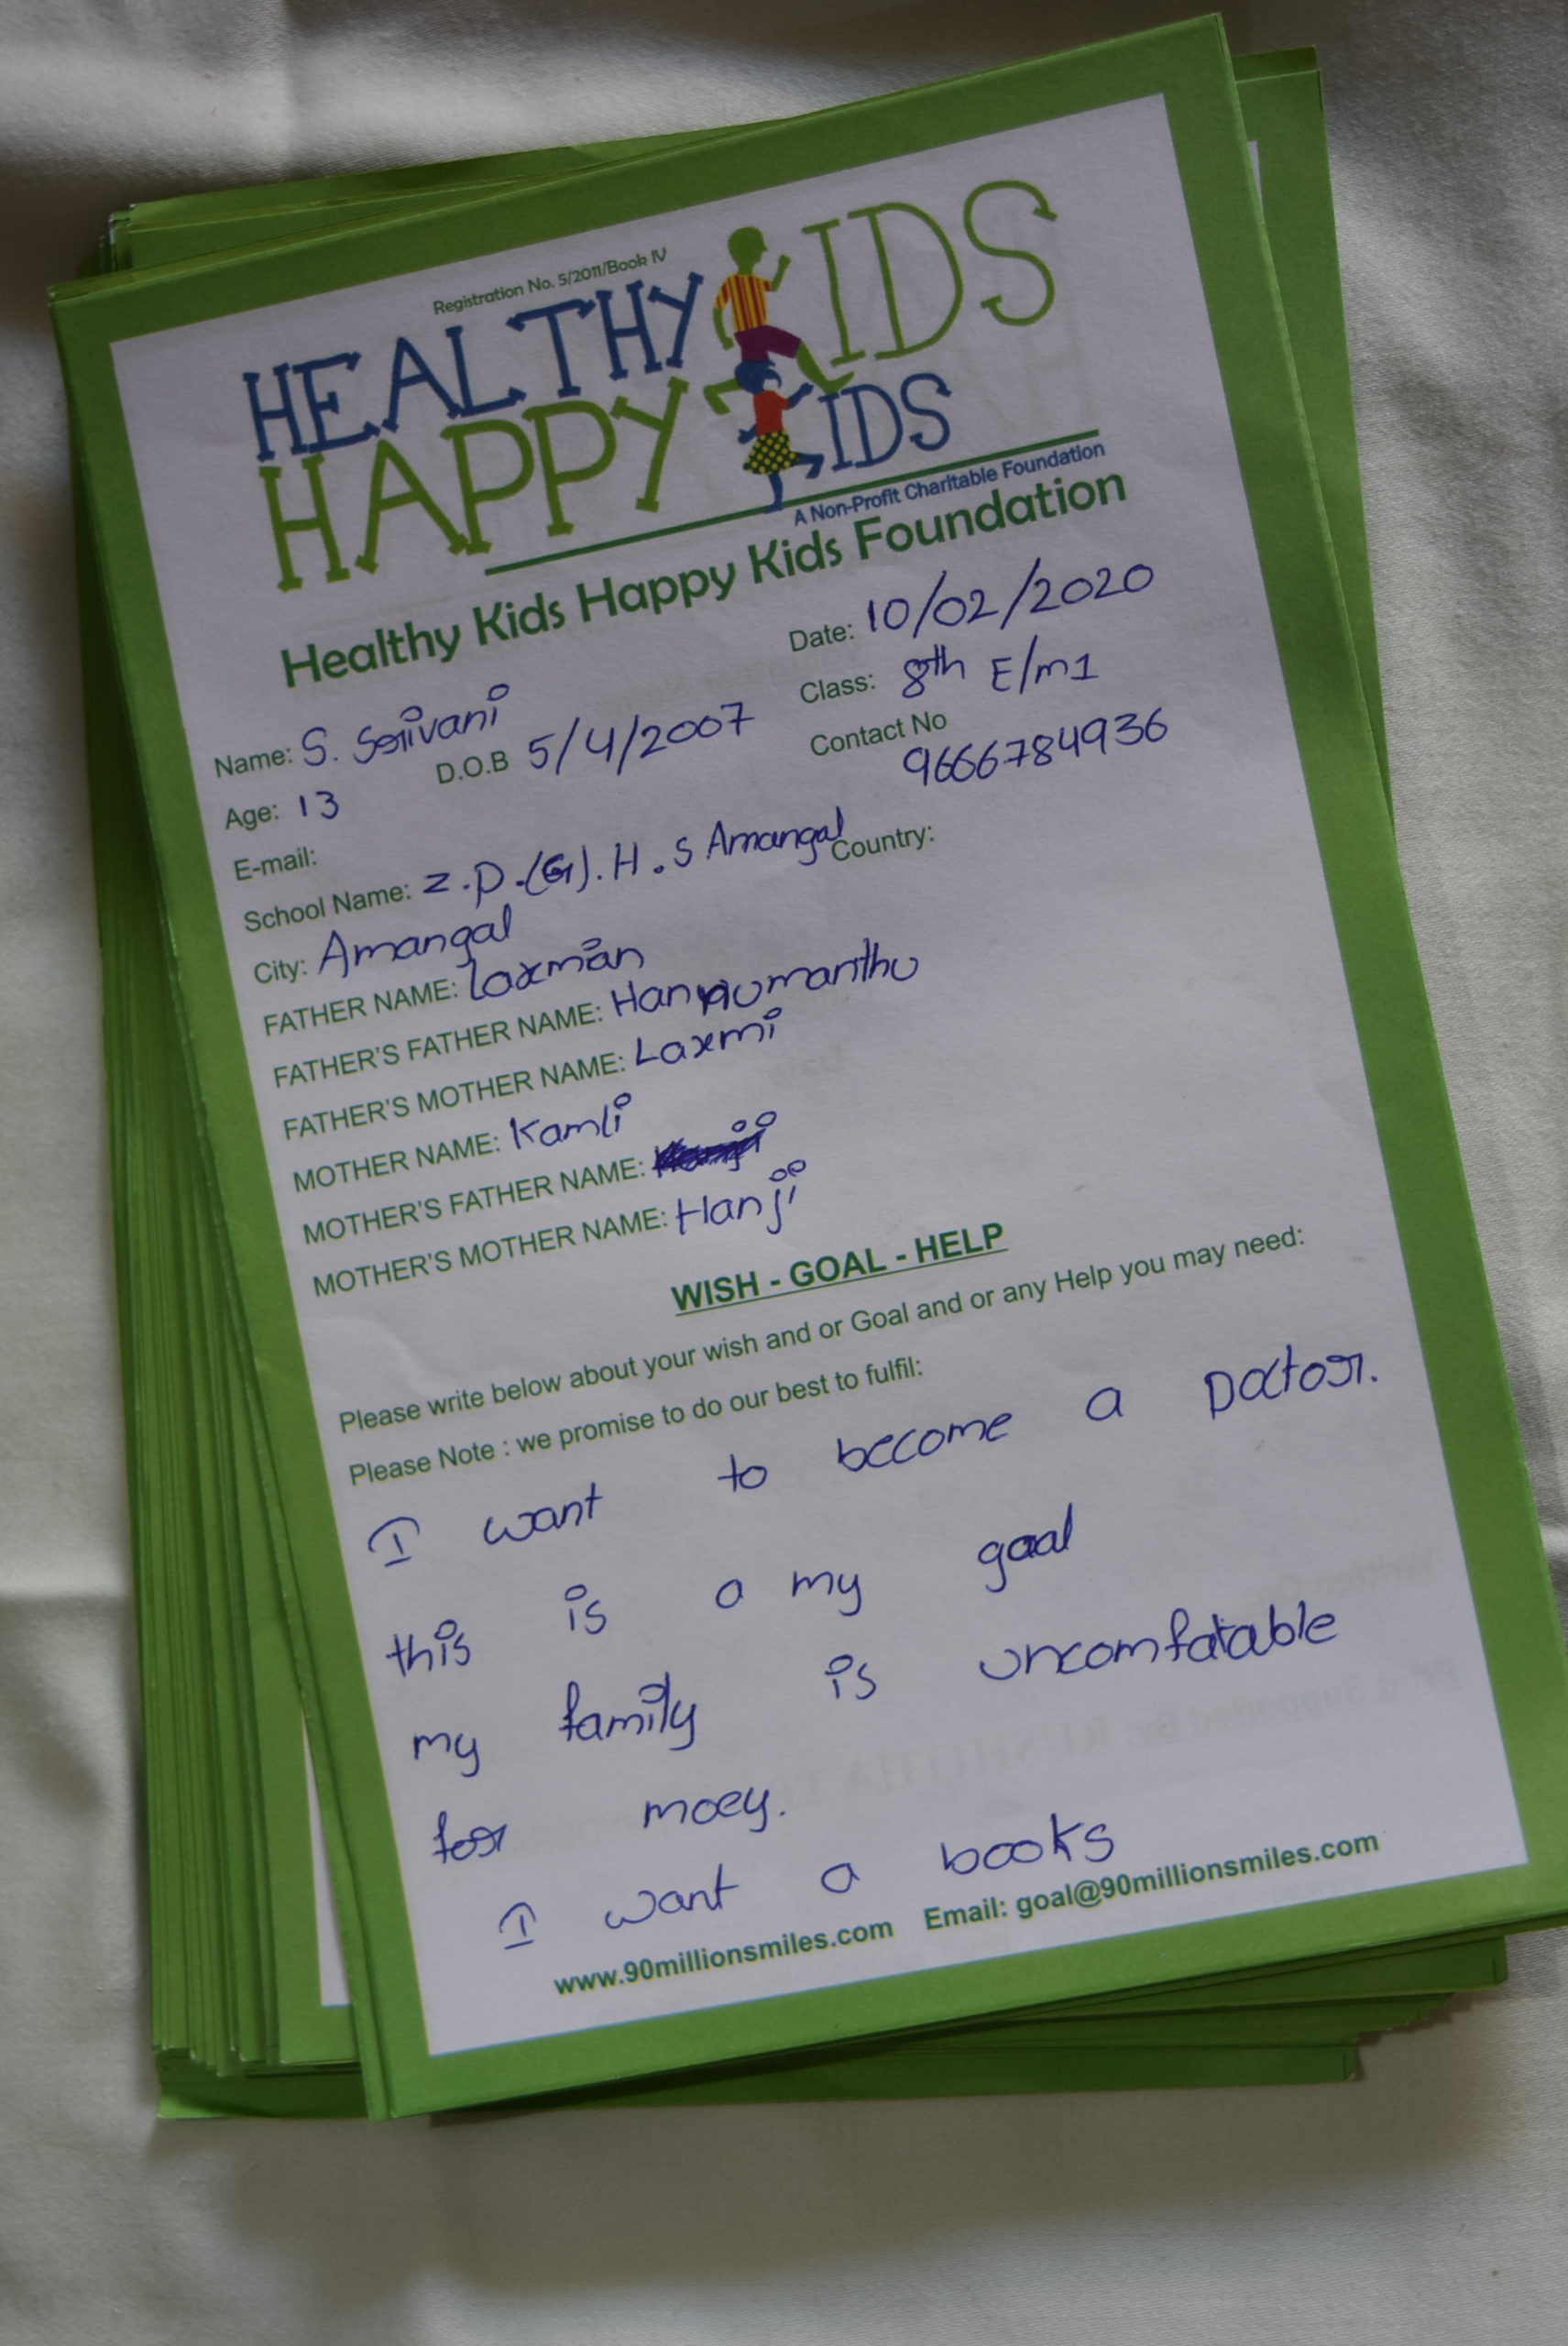 Registration No. 5/2011/Book IV
HEALTHY KIDS
HAPPY KIDS
A Non-Profit Charitable Foundation
Healthy Kids Happy Kids Foundation
Date: 10/02/2020
Name: S. Srivani
Class: 8th E/m1
Age: 13 D.O.B 5/4/2007
Contact No
9666784936
E-mail:
School Name: Z.P.(G).H.S Amangal Country:
City: Amangal
FATHER NAME: Laxman
FATHER'S FATHER NAME: Hanumanthu
FATHER'S MOTHER NAME: Laxmi
MOTHER NAME: Kamli
MOTHER'S FATHER NAME:
MOTHER'S MOTHER NAME: Hanji
WISH - GOAL - HELP
Please write below about your wish and or Goal and or any Help you may need:
Please Note : we promise to do our best to fulfil:
I want to become a Doctor.
this is a my goal
my family is uncomfatable
for moey.
I want a books
www.90millionsmiles.com Email: goal@90millionsmiles.com